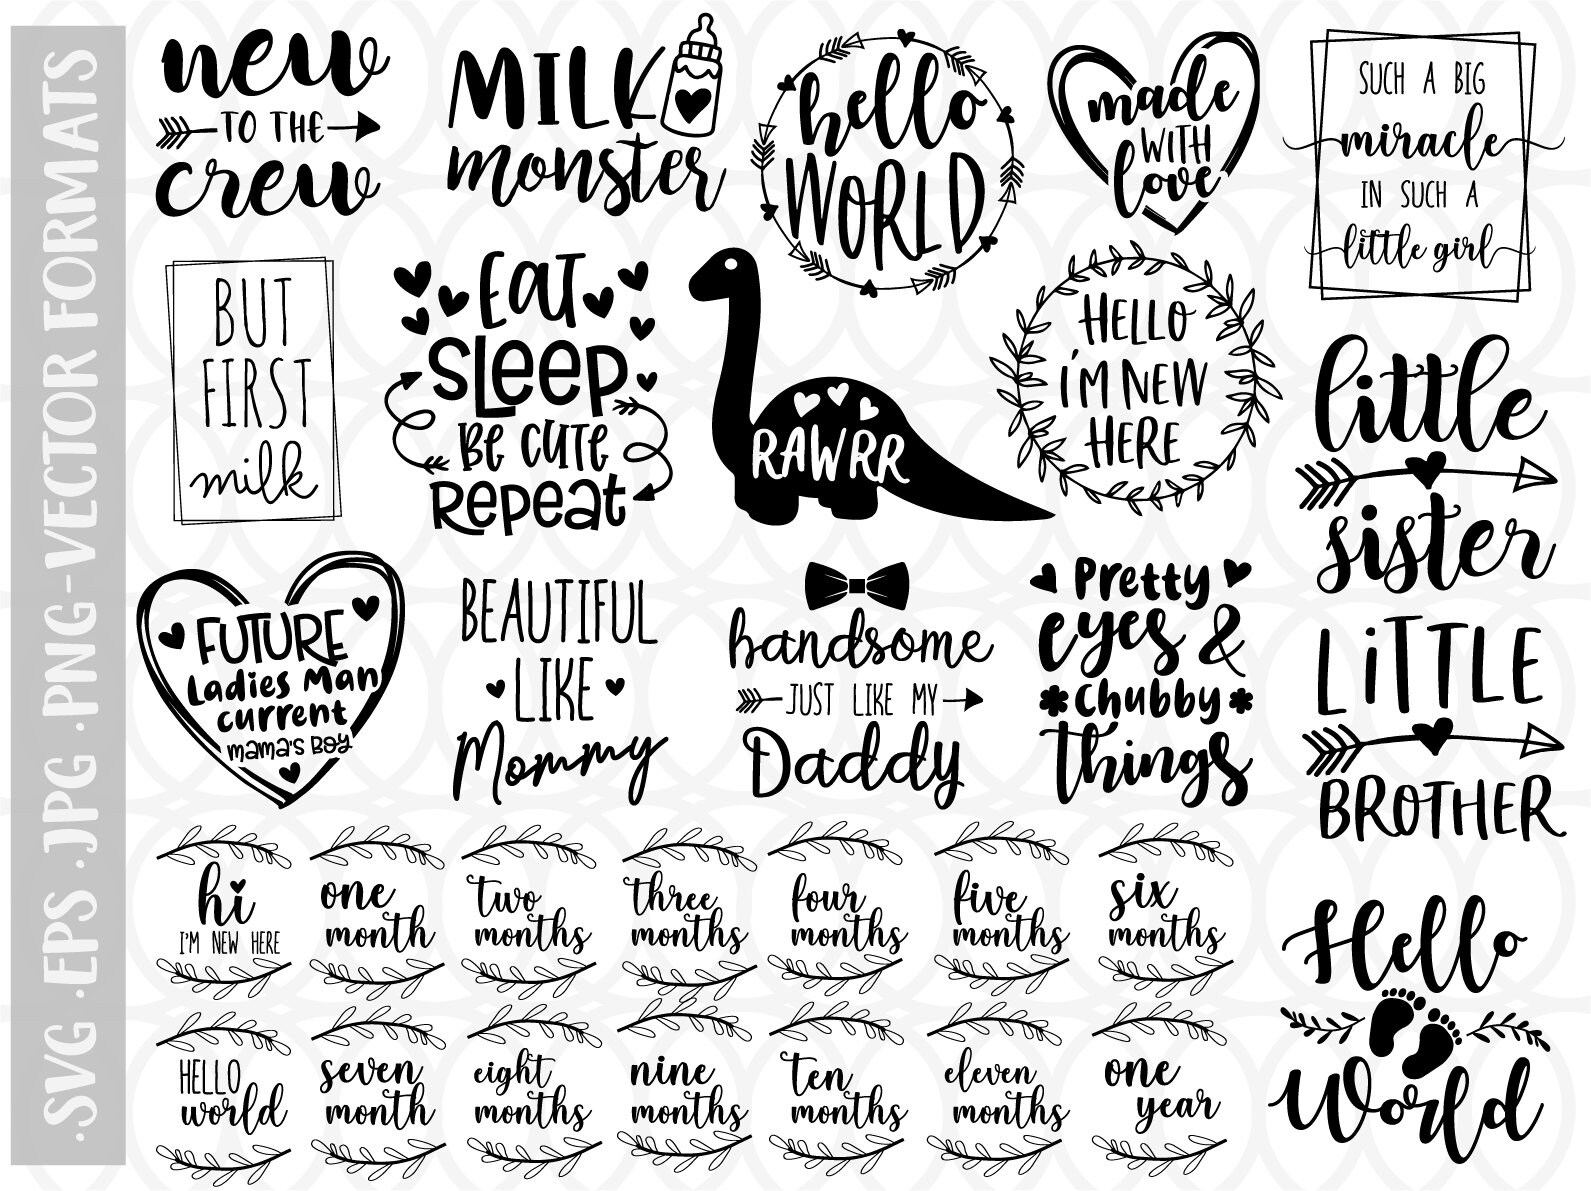 .SVG .EPS .JPG .PNG-VECTOR FORMATS
new
TO THE
crew
MILK
monster
hello
WORLD
made
WITH
love
SUCH A BIG
miracle
IN SUCH A
little girl
BUT
FIRST
milk
EAT
SLEEP
BE CUTE
REPEAT
RAWRR
HELLO
I'M NEW
HERE
little
sister
FUTURE
Ladies Man
current
mama's Boy
BEAUTIFUL
LIKE
Mommy
handsome
JUST LIKE MY
Daddy
Pretty
eyes &
Chubby
things
LiTTLE
BROTHER
hi
I'M NEW HERE
one
month
two
months
three
months
four
months
five
months
six
months
Hello
World
HELLO
world
seven
month
eight
months
nine
months
ten
months
eleven
months
one
year